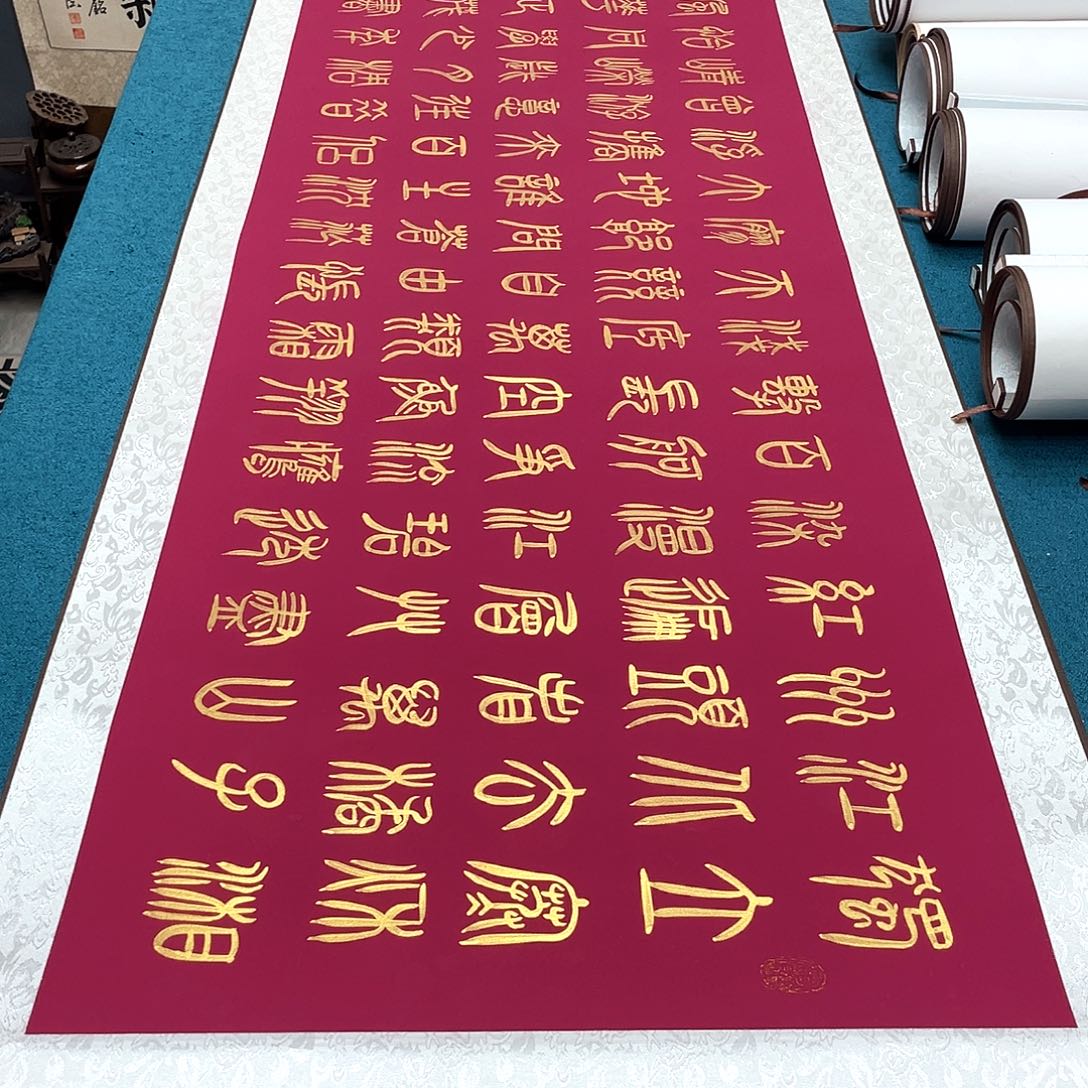 獨立寒秋湘
江北去橘子
洲頭看萬山
紅遍層林盡
染漫江碧透
百舸爭流鷹
擊長空魚翔
淺底萬類霜
天競自由悵
寥廓問蒼茫
大地誰主沉
浮攜來百侶
曾游憶往昔
崢嶸歲月稠
恰同學少年
風華正茂書